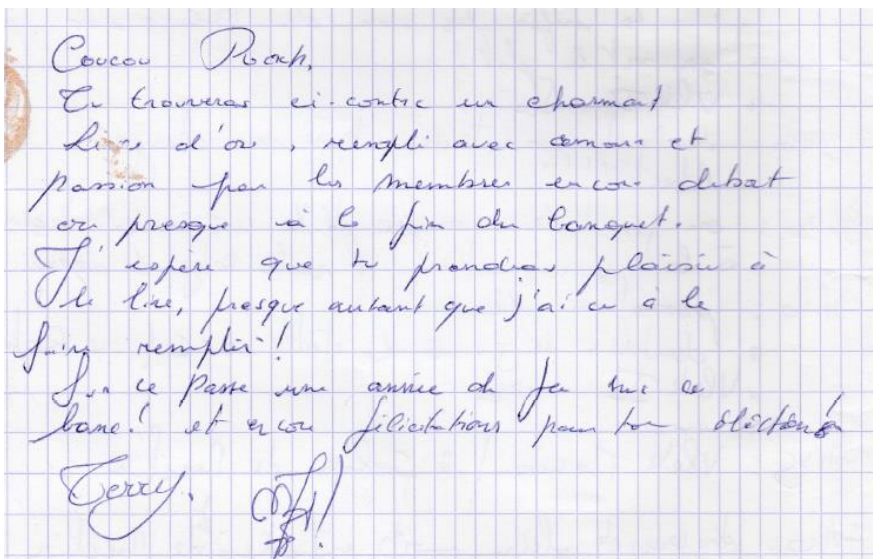 Coucou Poch,
Tu trouveras ci-contre un charmant
livre d'or, rempli avec amour et
passion par les membres encore debout
ou presque à la fin du banquet.
J'espère que tu prendras plaisir à
le lire, presque autant que j'ai eu à le
faire remplir !
Sur ce Passe une année de feu sur ce
banc ! et encore félicitations pour ton élection !
Terry.